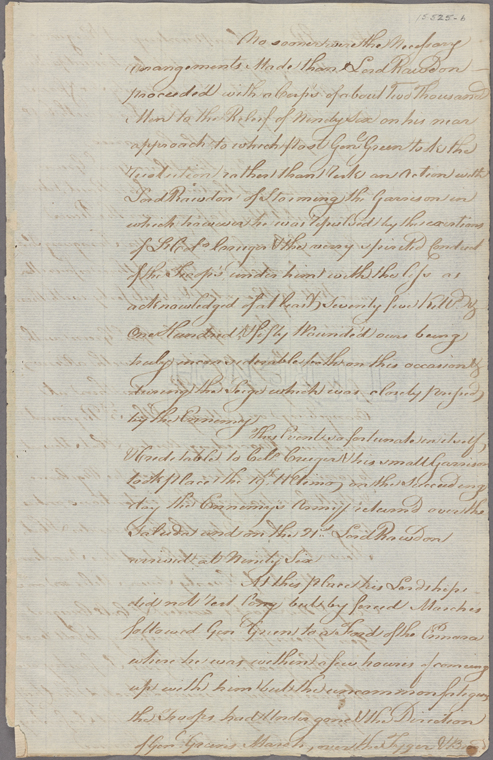 15525-6
No sooner were the Necessary
arrangements Made than Lord Rawdon
proceeded with a Corps of about Two Thousand
Men to the Relief of Ninety Six on his near
approach to which place Genl Green took the
resolution rather than risk an Action with
Lord Rawdon of Storming the Garrison in
which however he was repulsed by the exertions
of Lt Colo Cruger & the very spirited Conduct
of the Troops under him with the loss as
acknowledged of at least Seventy five Kill'd &
One Hundred & fifty Wounded ours being
truly inconsiderable both on this occasion &
during the Siege which was closely pressed
by the Ennemy.
This Event so fortunate in itself,
& Creditable to Colo Cruger & his small Garrison
took place the 19th Ultimo, on the Preceeding
day the Ennemys Army retired over the
Saluda and on the 21st Lord Rawdon
arrived at Ninety Six
At this place his Lordship
did not rest long but by forced Marches
followed Genl Green to a Ford of the Enoree
where he was within a few houres of coming
up with him but the uncommon fatigue
the Troops had Undergone & the Direction
of Genl Greens March, over the Tyger & Broad